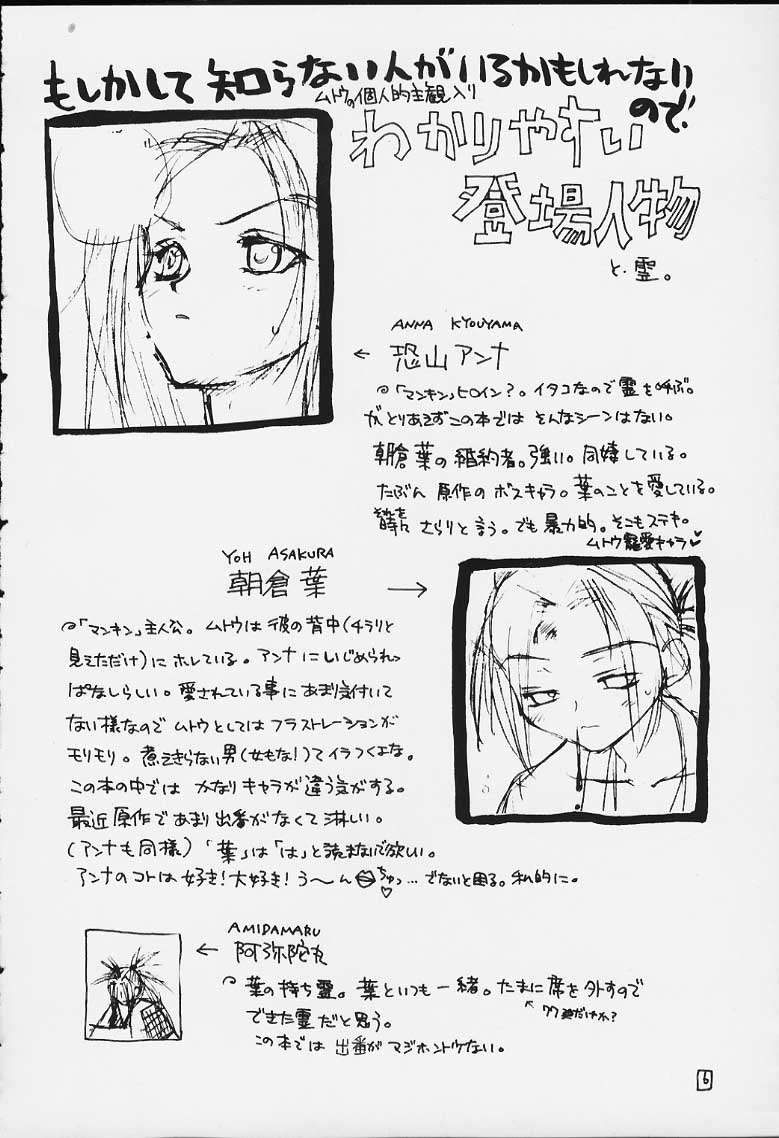 もしかして知らない人がいるかもしれない
ので
ムトウの個人的主観入り
わかりやすい
登場人物
と・霊。
ANNA KYOUYAMA
← 恐山アンナ
「マンキン」ヒロイン?。イタコなので霊を呼ぶ。
がとりあえずこの本では そんなシーンはない。
朝倉葉の婚約者。強い。同棲している。
たぶん 原作のボスキャラ。葉のことを愛している。
それを
時にさらりと言う。でも暴力的。そこもステキ。
ムトウ寵愛キャラ♥
YOH ASAKURA
朝倉 葉 →
「マンキン」主人公。ムトウは彼の背中(チラリと
見えただけ)にホレている。アンナにいじめられっ
ぱなしらしい。愛されている事にあまり気付いて
ない様なのでムトウとしてはフラストレーションが
モリモリ。煮えきらない男(女もな!)てイラつくよな。
この本の中では かなりキャラが違う気がする。
最近原作であまり出番がなくて淋しい。
(アンナも同様)「葉」は「は」と読まないで欲しい。
アンナのコトは好き!大好き!う〜ん ちゅっ♡…でないと困る。私的に。
AMIDAMARU
← 阿弥陀丸
葉の持ち霊。葉といつも一緒。たまに席を外すので
できた霊だと思う。
この本では 出番がマジホントウない。
6